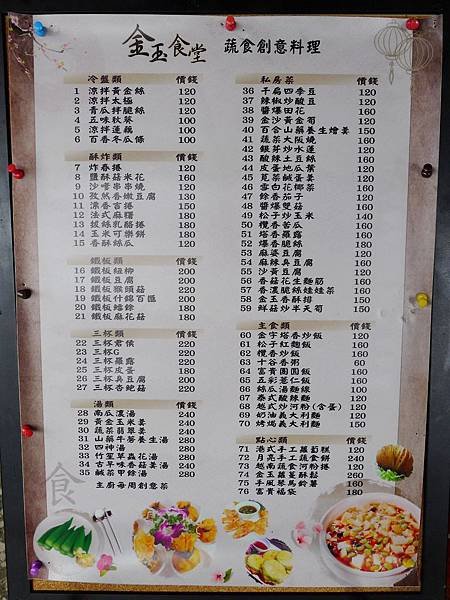 金玉食堂 蔬食創意料理
冷盤類 價錢
1 涼拌黃金絲 120
2 涼拌太極 120
3 青瓜拌脆絲 120
4 五味秋葵 100
5 涼拌蓮藕 100
6 百香冬瓜條 100
酥炸類 價錢
7 炸春捲 120
8 鹽酥菇米花 160
9 沙嗲串串燒 120
10 孜然香嫩豆腐 130
11 漂香吉捲 150
12 法式麻糬 180
13 拔絲乳酪捲 180
14 玉米可樂餅 180
15 香酥絲瓜 120
鐵板類 價錢
16 鐵板紐柳 200
17 鐵板豆腐 200
18 鐵板猴頭菇 220
19 鐵板什錦百匯 220
20 鐵板蟳餘 180
21 鐵板麻花菇 180
三杯類 價錢
22 三杯君僕 220
23 三杯G 220
24 三杯羅露 220
25 三杯皮蛋 180
26 三杯臭豆腐 220
27 三杯杏鮑菇 220
湯類 價錢
28 南瓜濃湯 240
29 黃金玉米羹 240
30 蔬菜翡翠羹 240
31 山藥牛蒡養生湯 280
32 四神湯 280
33 竹笙草蟲花湯 280
34 古早味香菇羹湯 280
35 鹹菜甲餘湯 280
主廚每周創意菜
私房菜 價錢
36 干扁四季豆 120
37 辣椒炒酸豆 120
38 醬爆田花 160
39 金沙黃金筍 120
40 百合山藥養生燴羹 150
41 蔬菜大阪燒 160
42 銀芽炒水蓮 120
43 酸辣土豆絲 160
44 皮蛋地瓜葉 120
45 莧菜鹹蛋羹 120
46 雪白花椰菜 160
47 餘香茄子 120
48 醬爆雙菇 160
49 松子炒玉米 140
50 欖香苦瓜 160
51 塔香羅露 160
52 爆香脆絲 180
53 麻婆豆腐 120
54 麻辣臭豆腐 160
55 沙黃豆腐 120
56 香菇花生麵筋 160
57 香濃脆絲娃娃菜 160
58 金玉香酥排 150
59 鮮菇炒半天筍 150
主食類 價錢
60 金字塔香炒飯 120
61 松子紅麵飯 160
62 欖香炒飯 160
63 十谷香粥 60
64 富貴圓圓飯 160
65 五彩薏仁飯 160
66 絲瓜湯麵線 100
67 泰式酸辣麵 120
68 越式炒河粉(含蛋) 120
69 奶油義大利麵 120
70 烤焗義大利麵 150
點心類 價錢
71 港式手工蘿蔔糕 120
72 月亮手工蔬食餅 240
73 越南蔬食河粉捲 120
74 金玉蘿荽酥鬆 260
75 手風琴馬鈴薯 160
76 富貴福袋 160
食